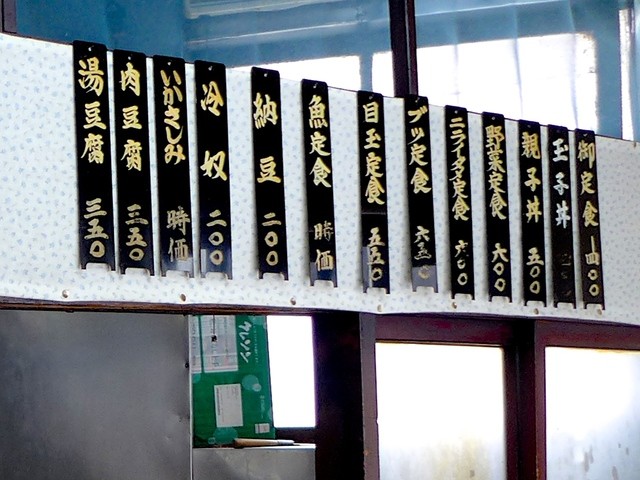 湯豆腐 三五〇
肉豆腐 三五〇
いかさしみ 時価
冷奴 二〇〇
納豆 二〇〇
魚定食 時価
目玉定食 五五〇
ブツ定食 六五〇
ニライタメ定食 六〇〇
野菜定食 六〇〇
親子丼 五〇〇
玉子丼
御定食 四〇〇